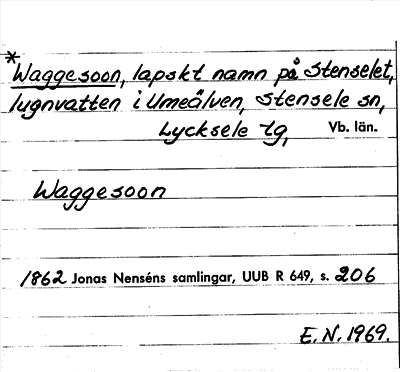 *Waggesoon, lapskt namn på Stenselet,
lugnvatten i Umeälven, Stensele sn,
Lycksele tg, Vb. län.
Waggesoon
1862 Jonas Nenséns samlingar, UUB R 649, s. 206
E.N. 1969.